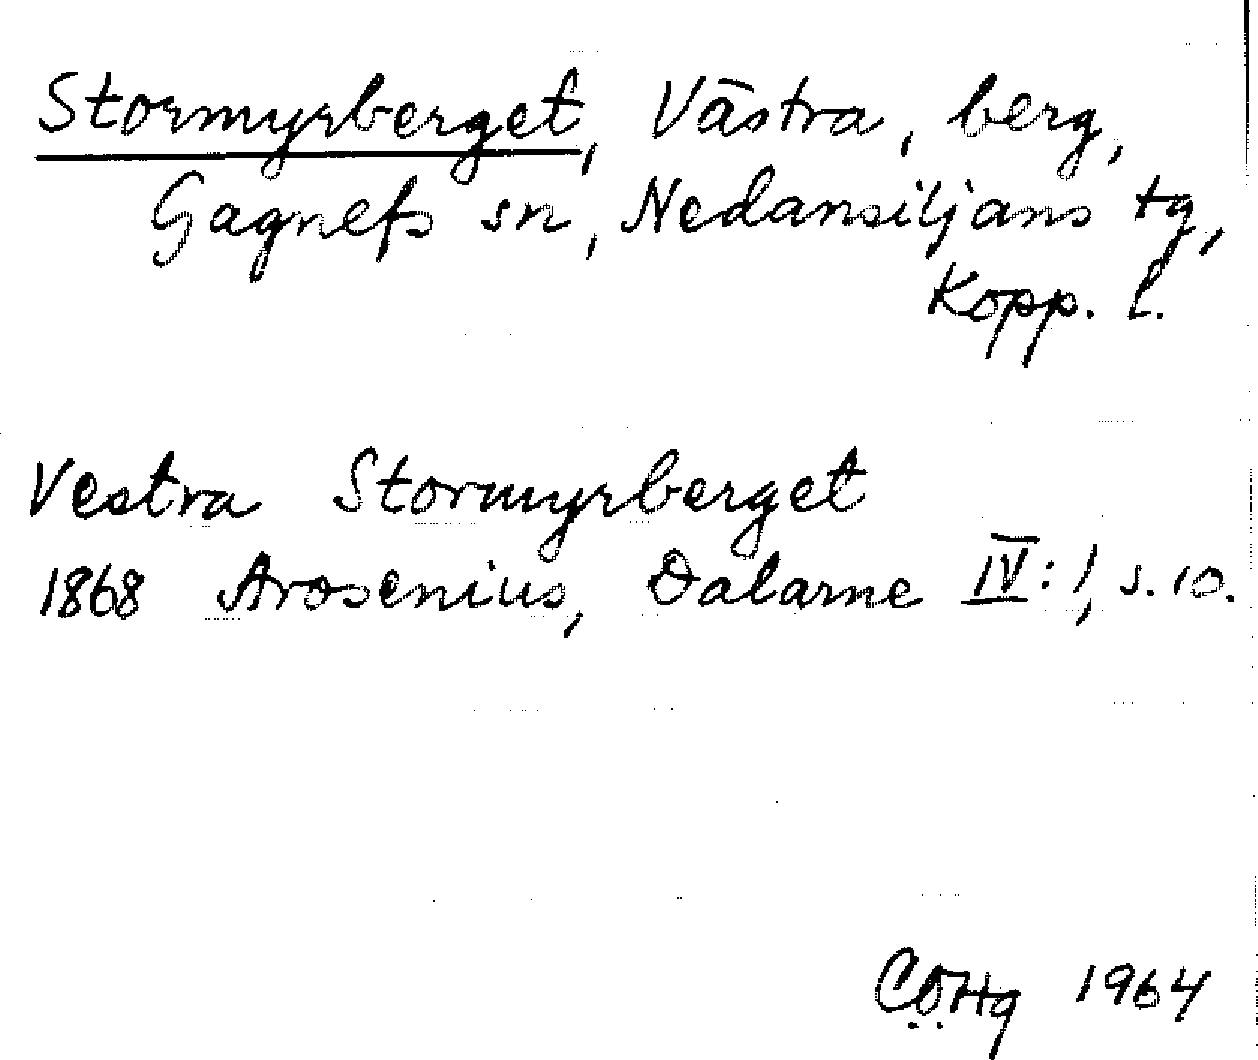 Stormyrberget, Västra, berg,
Gagnefs sn, Nedansiljans tg,
Kopp. l.
Vestra Stormyrberget
1868 Arosenius, Dalarne IV:1, s. 10.
CÖHg 1964